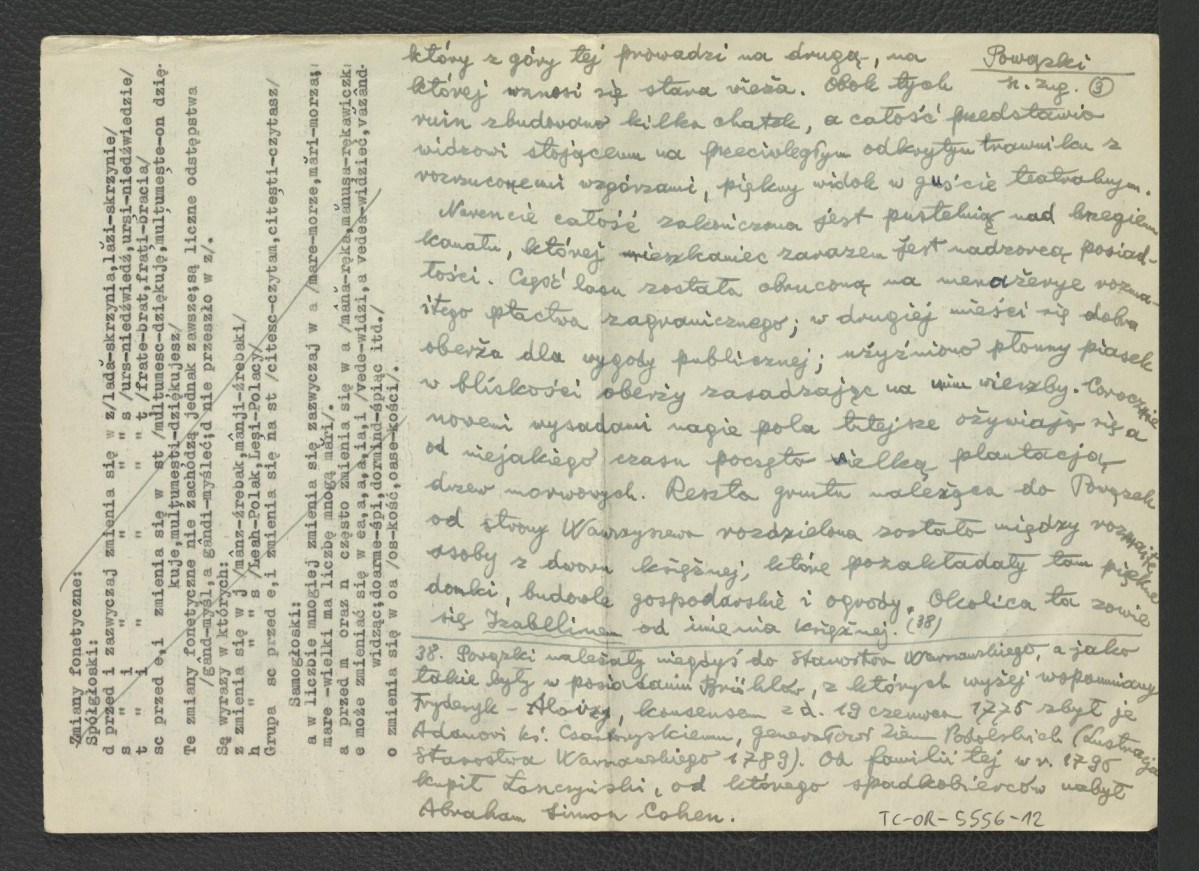 Powązki
n. zug. 3
który z góry tej prowadzi na drugą, na
której wznosi się stara wieża. Obok tych
ruin zbudowano kilka chatek, a całość przedstawia
widzowi stojącemu na przeciwległym odkrytym trawniku z
rozrzuconemi wzgórzami, piękny widok w guście teatralnym.
Narencie całość zakończona jest pustelnią nad brzegiem
kanału, której mieszkaniec zarazem jest nadzorcą posiad-
łości. Część lasu została obrucona na menażerye rozma-
itego ptactwa zagranicznego; w drugiej mieści się dobra
oberża dla wygody publicznej; użyźniono płonny piasek
w bliskości oberży zasadzając na nim wierzby. Corocznie
nowemi wysadami nagie pola tutejsze ożywiają się a
od niejakiego czasu poczęto wielką plantacją
drzew morwowych. Reszta gruntu należąca do Powązek
od strony Wawrzyszewa rozdzielona została między rozmaite
osoby z dworu księżnej, które pozakładały tam piękne
domki, budowle gospodarskie i ogrody. Okolica ta zowie
się Izabellinem od imienia księżnej. (38)
38. Powązki należały niegdyś do Starostwa Warszawskiego, a jako
takie były w posiadaniu Brühlów, z których wyżej wspomniany
Fryderyk-Aloizy, konsensem z d. 19 czerwca 1775 zbył je
Adamowi ks. Czartoryskiemu, generałowi Ziem Podolskich (Lustracja
Starostwa Warszawskiego 1789). Od familii tej w r. 1795
kupił Łonczyński, od którego spadkobierców nabył
Abraham Simon Cohen.
TC-OR-5556-12
Zmiany fonetyczne:
Spółgłoski:
d przed i zazwyczaj zmienia się w z/ladă-skrzynia,lăzi-skrzynie/
s " i " " " s /urs-niedźwiedź,urşi-niedźwiedzie/
t " i " " " t /frate-brat,fraţi-bracia/
sc przed e,i zmienia się w st /multumesc-dziękuję,mulţumeşte-on dzię-
kuje,mulţumeşti-dziękujesz/
Te zmiany fonetyczne nie zachodzą jednak zawsze;są liczne odstępstwa
/gând-myśl,a gândi-myśleć;d nie przeszło w z/.
Są wyrazy w których:
z zmienia się w j /mânz-źrebak,mânji-źrebaki/
h " " " s /Leah-Polak,Leşi-Polacy/
Grupa sc przed e,i zmienia się na st /citesc-czytam,citeşti-czytasz/
Samogłoski:
a w liczbie mnogiej zmienia się zazwyczaj w a /mare-morze,mări-morza;
mare-wielki ma liczbę mnogą mări/.
a przed m oraz n często zmienia się w a /mână-ręka,mănuşa-rękawiczk
e może zmieniać się w ea,a,a,ia,i /vede-widzi,a vedea-widzieć,văzând-
widząc;doarme-śpi,dormind-śpiąc itd./
o zmienia się w oa /os-kość,oase-kości/.